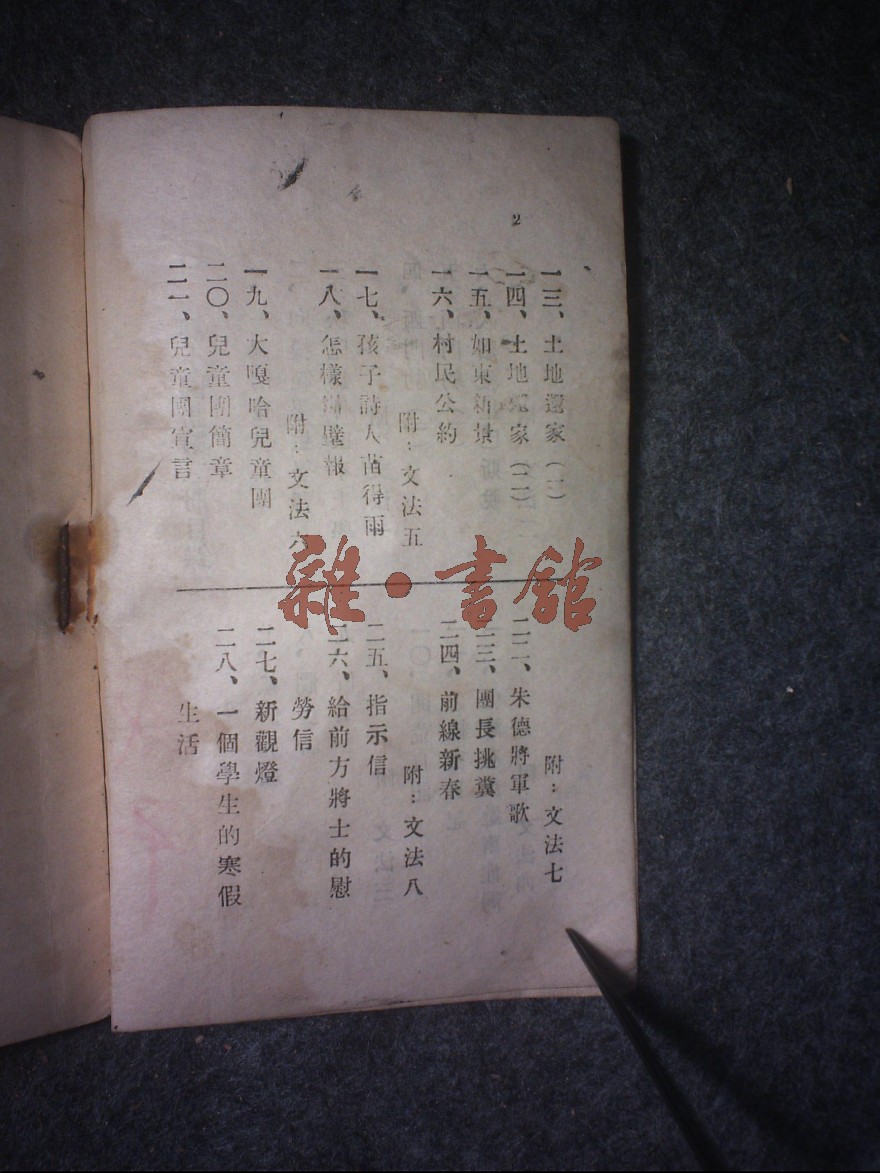 2
一三、土地還家(一)
一四、土地還家(二)
一五、如東新景
一六、村民公約
附:文法五
一七、孩子詩人苗得雨
一八、怎樣 壁報
附:文法六
一九、大嘎哈兒童團
二〇、兒童團簡章
二一、兒童團宣言
附:文法七
二二、朱德將軍歌
二三、團長挑糞
二四、前線新春
附:文法八
二五、指示信
二六、給前方將士的慰
勞信
二七、新觀燈
二八、一個學生的寒假
生活
雜·書館